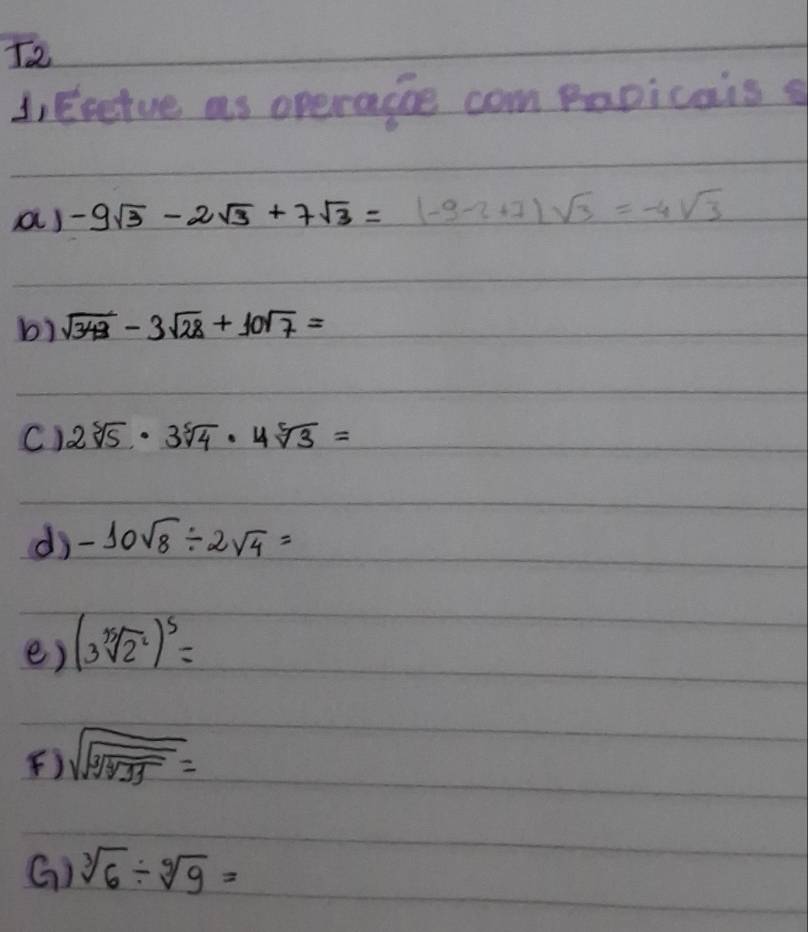 T2
1, Efetue as operaçõe com Radicais
a) -9√3 - 2√3 + 7√3 = (-9-2+7)√3 = -4√3
b) √343 - 3√28 + 10√7 =
c) 2⁵√5 · 3⁵√4 · 4⁵√3 =
d) -10√8 ÷ 2√4 =
e) (3 ¹⁵√2²)⁵ =
F)
G) ³√6 ÷ ⁹√9 =